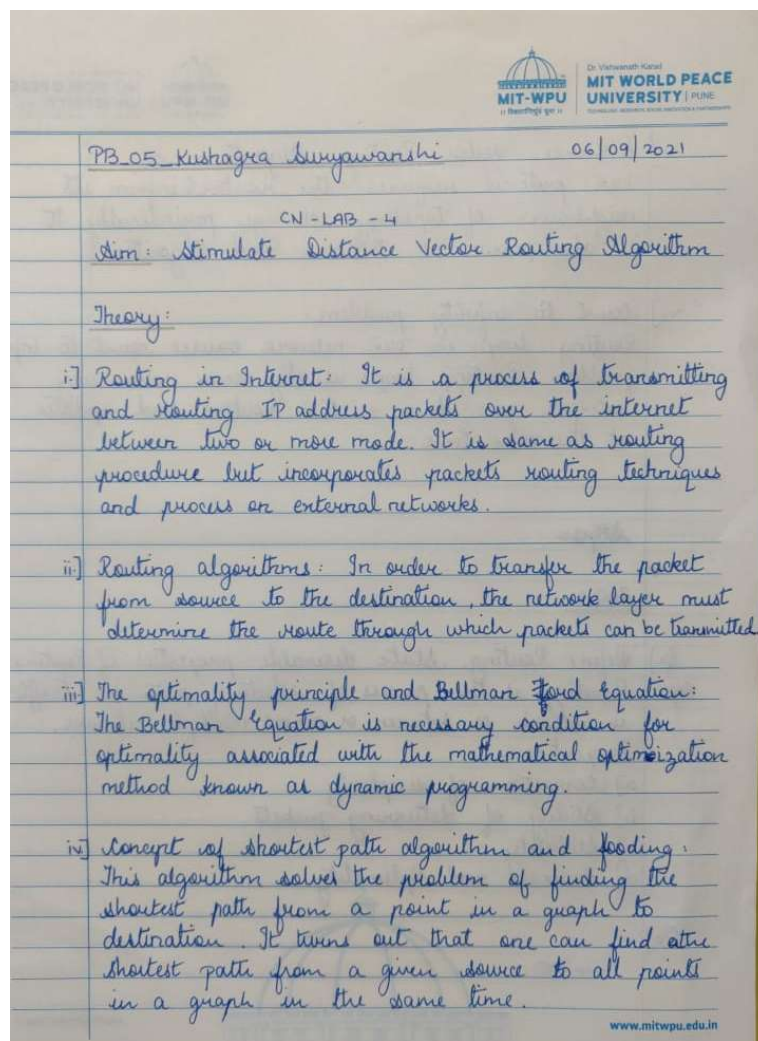 Dr. Vishwanath Karad
MIT WORLD PEACE
UNIVERSITY | PUNE
MIT-WPU
PB_05_Kushagra Suryawanshi 06/09/2021
CN-LAB-4
Aim: Stimulate Distance Vector Routing Algorithm
Theory:
i.] Routing in Internet: It is a process of transmitting
and routing IP address packets over the internet
between two or more mode. It is same as routing
procedure but incorporates packets routing techniques
and process on external networks.
ii.] Routing algorithms: In order to transfer the packet
from source to the destination, the network layer must
determine the route through which packets can be transmitted
iii] The optimality principle and Bellman Ford Equation:
The Bellman Equation is necessary condition for
optimality associated with the mathematical optimization
method known as dynamic programming.
iv] Concept of shortest path algorithm and fooding:
This algorithm solves the problem of finding the
shortest path from a point in a graph to
destination. It turns out that one can find the
shortest path from a given source to all points
in a graph in the same time.
www.mitwpu.edu.in